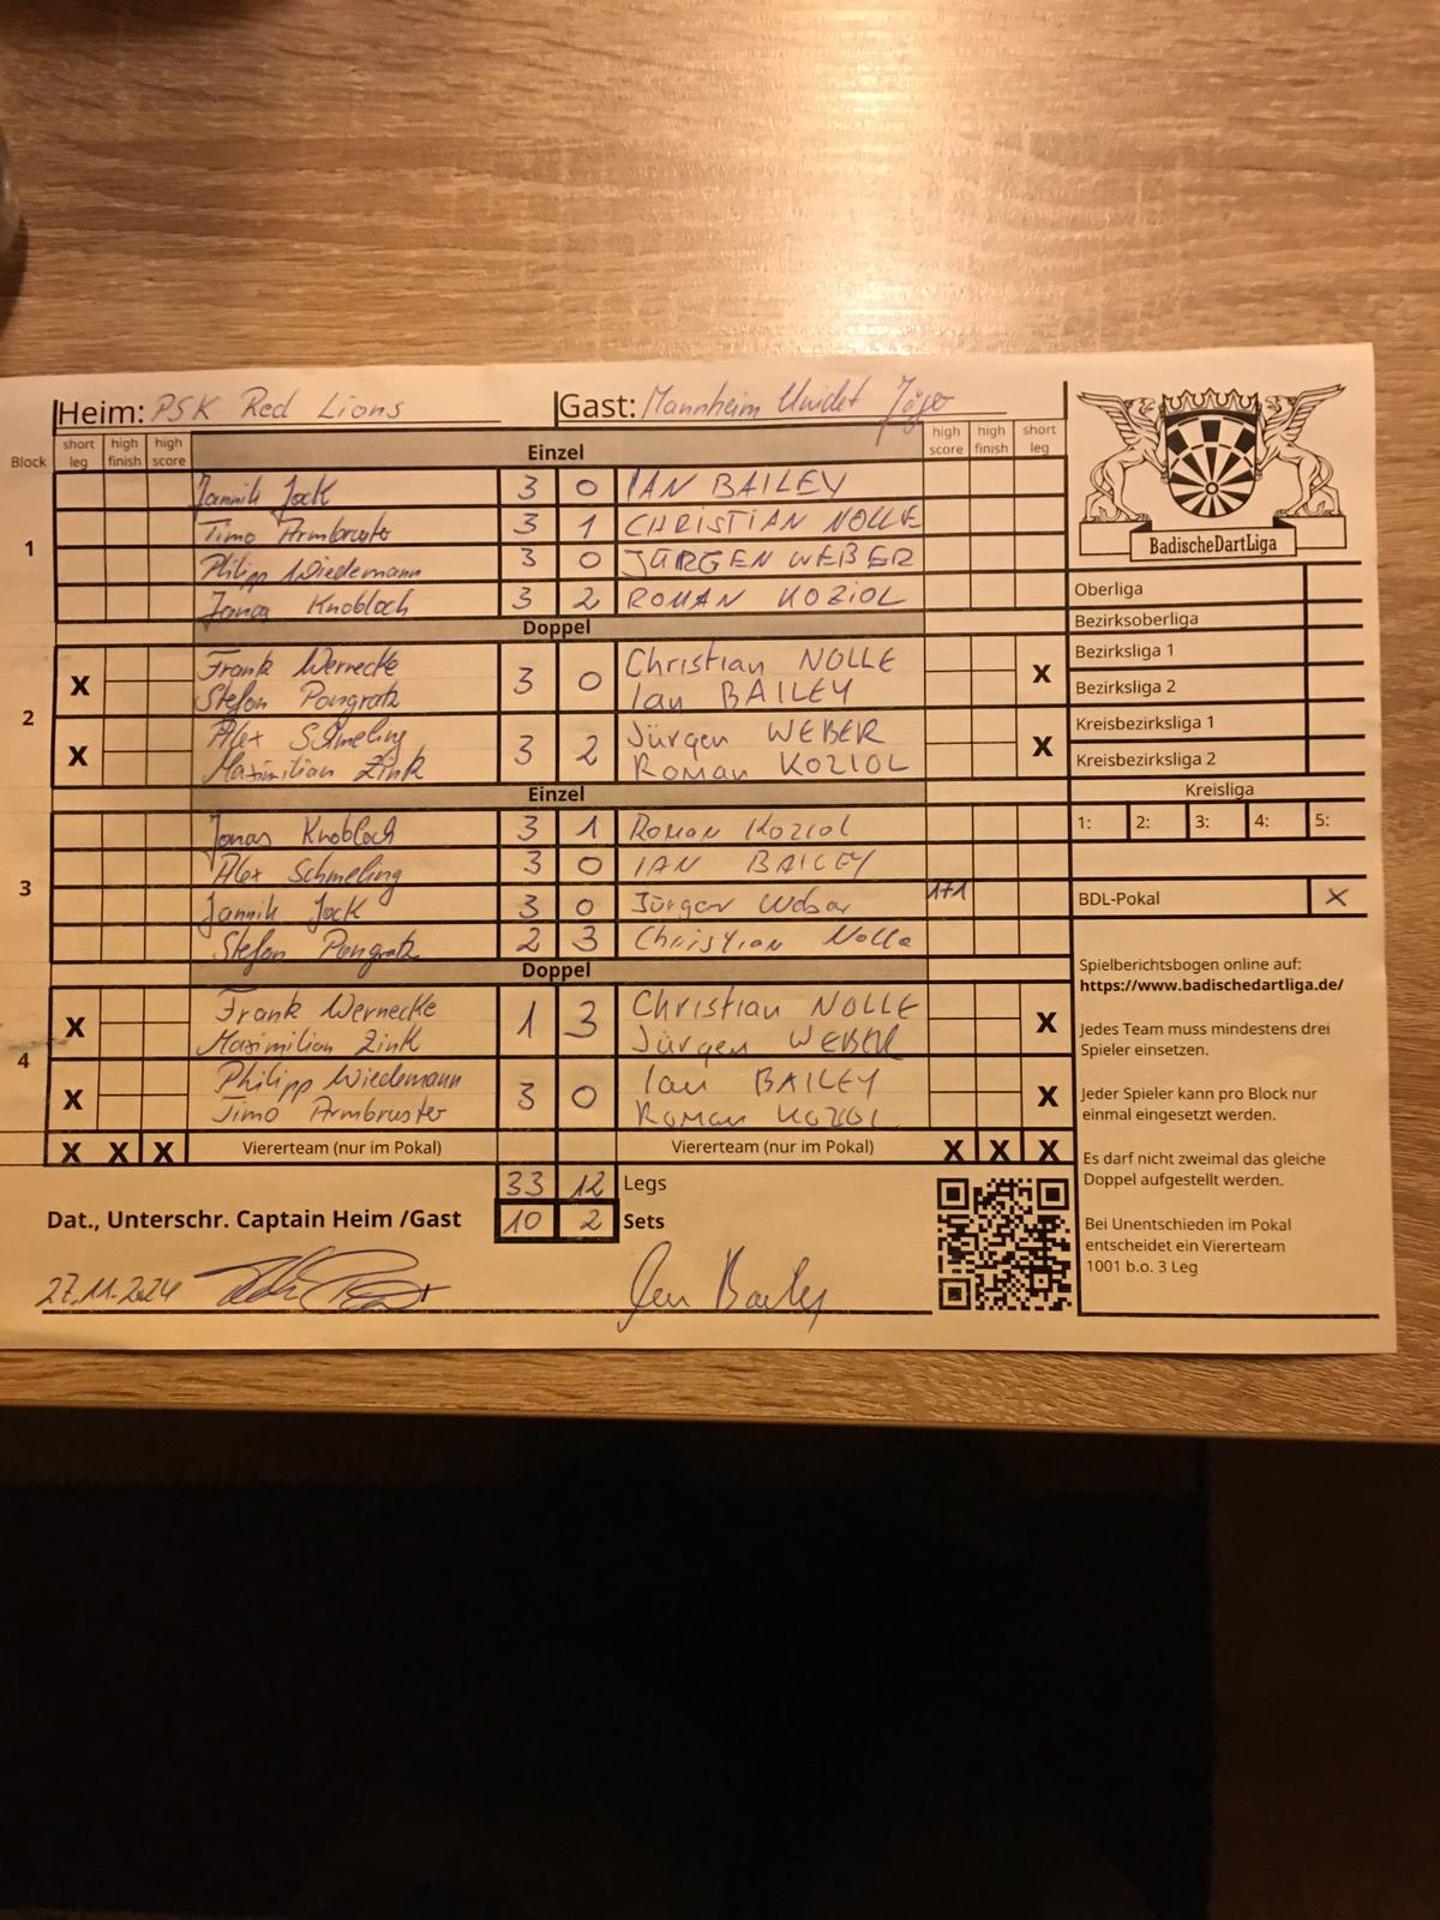 Heim: PSK Red Lions Gast: Mannheim Unidet Jäger
Block short leg high finish high score Einzel high score high finish short leg
1
Jannik Jock 3 0 IAN BAILEY
Timo Armbruster 3 1 CHRISTIAN NOLLE
Philipp Wiedemann 3 0 JÜRGEN WEBER
Jonas Knobloch 3 2 ROMAN KOZIOL
Doppel
2
X Frank Wernecke 3 0 Christian NOLLE X
Stefan Pongratz Ian BAILEY
X Alex Schmeling 3 2 Jürgen WEBER X
Maximilian Zink Roman KOZIOL
Einzel
3
Jonas Knobloch 3 1 Roman Koziol
Alex Schmeling 3 0 IAN BAILEY
Jannik Jock 3 0 Jürgen Weber 171
Stefan Pongratz 2 3 Christian Nolle
Doppel
4
X Frank Wernecke 1 3 Christian NOLLE X
Maximilian Zink Jürgen WEBER
X Philipp Wiedemann 3 0 Ian BAILEY X
Timo Armbruster Roman KOZIOL
X X X Viererteam (nur im Pokal) Viererteam (nur im Pokal) X X X
33 12 Legs
Dat., Unterschr. Captain Heim /Gast 10 2 Sets
27.11.2024 Ian Bailey
BadischeDartLiga
Oberliga
Bezirksoberliga
Bezirksliga 1
Bezirksliga 2
Kreisbezirksliga 1
Kreisbezirksliga 2
Kreisliga
1: 2: 3: 4: 5:
BDL-Pokal X
Spielberichtsbogen online auf:
https://www.badischedartliga.de/
Jedes Team muss mindestens drei
Spieler einsetzen.
Jeder Spieler kann pro Block nur
einmal eingesetzt werden.
Es darf nicht zweimal das gleiche
Doppel aufgestellt werden.
Bei Unentschieden im Pokal
entscheidet ein Viererteam
1001 b.o. 3 Leg